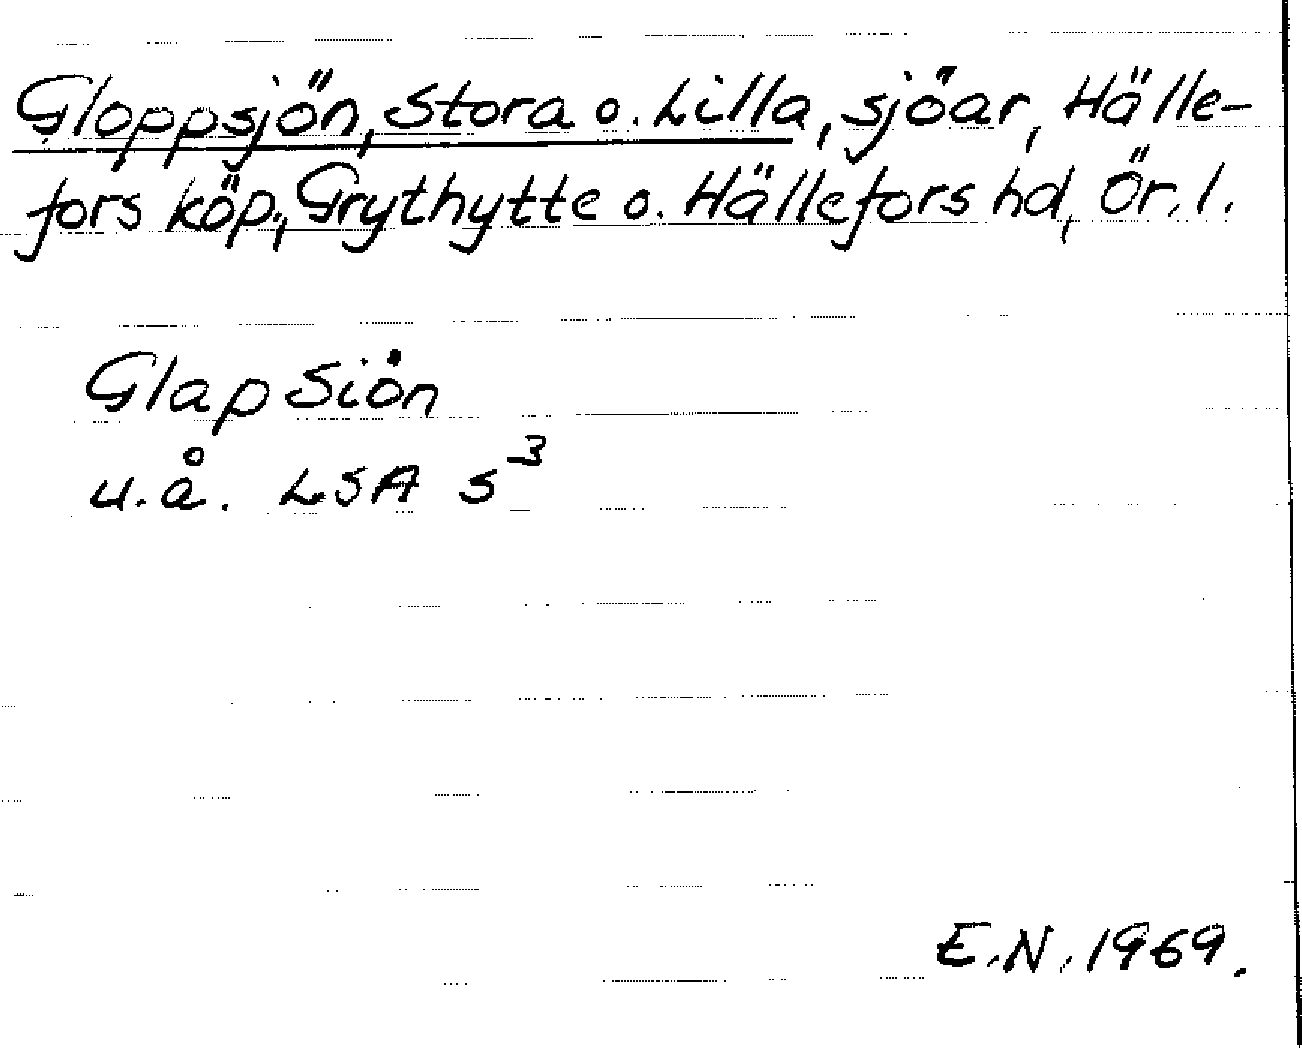 Gloppsjön, Stora o. Lilla, sjöar, Hälle-
fors köp., Grythytte o. Hällefors hd, Ör. l.
Glap Siön
u.å. LSA S³
E.N. 1969.